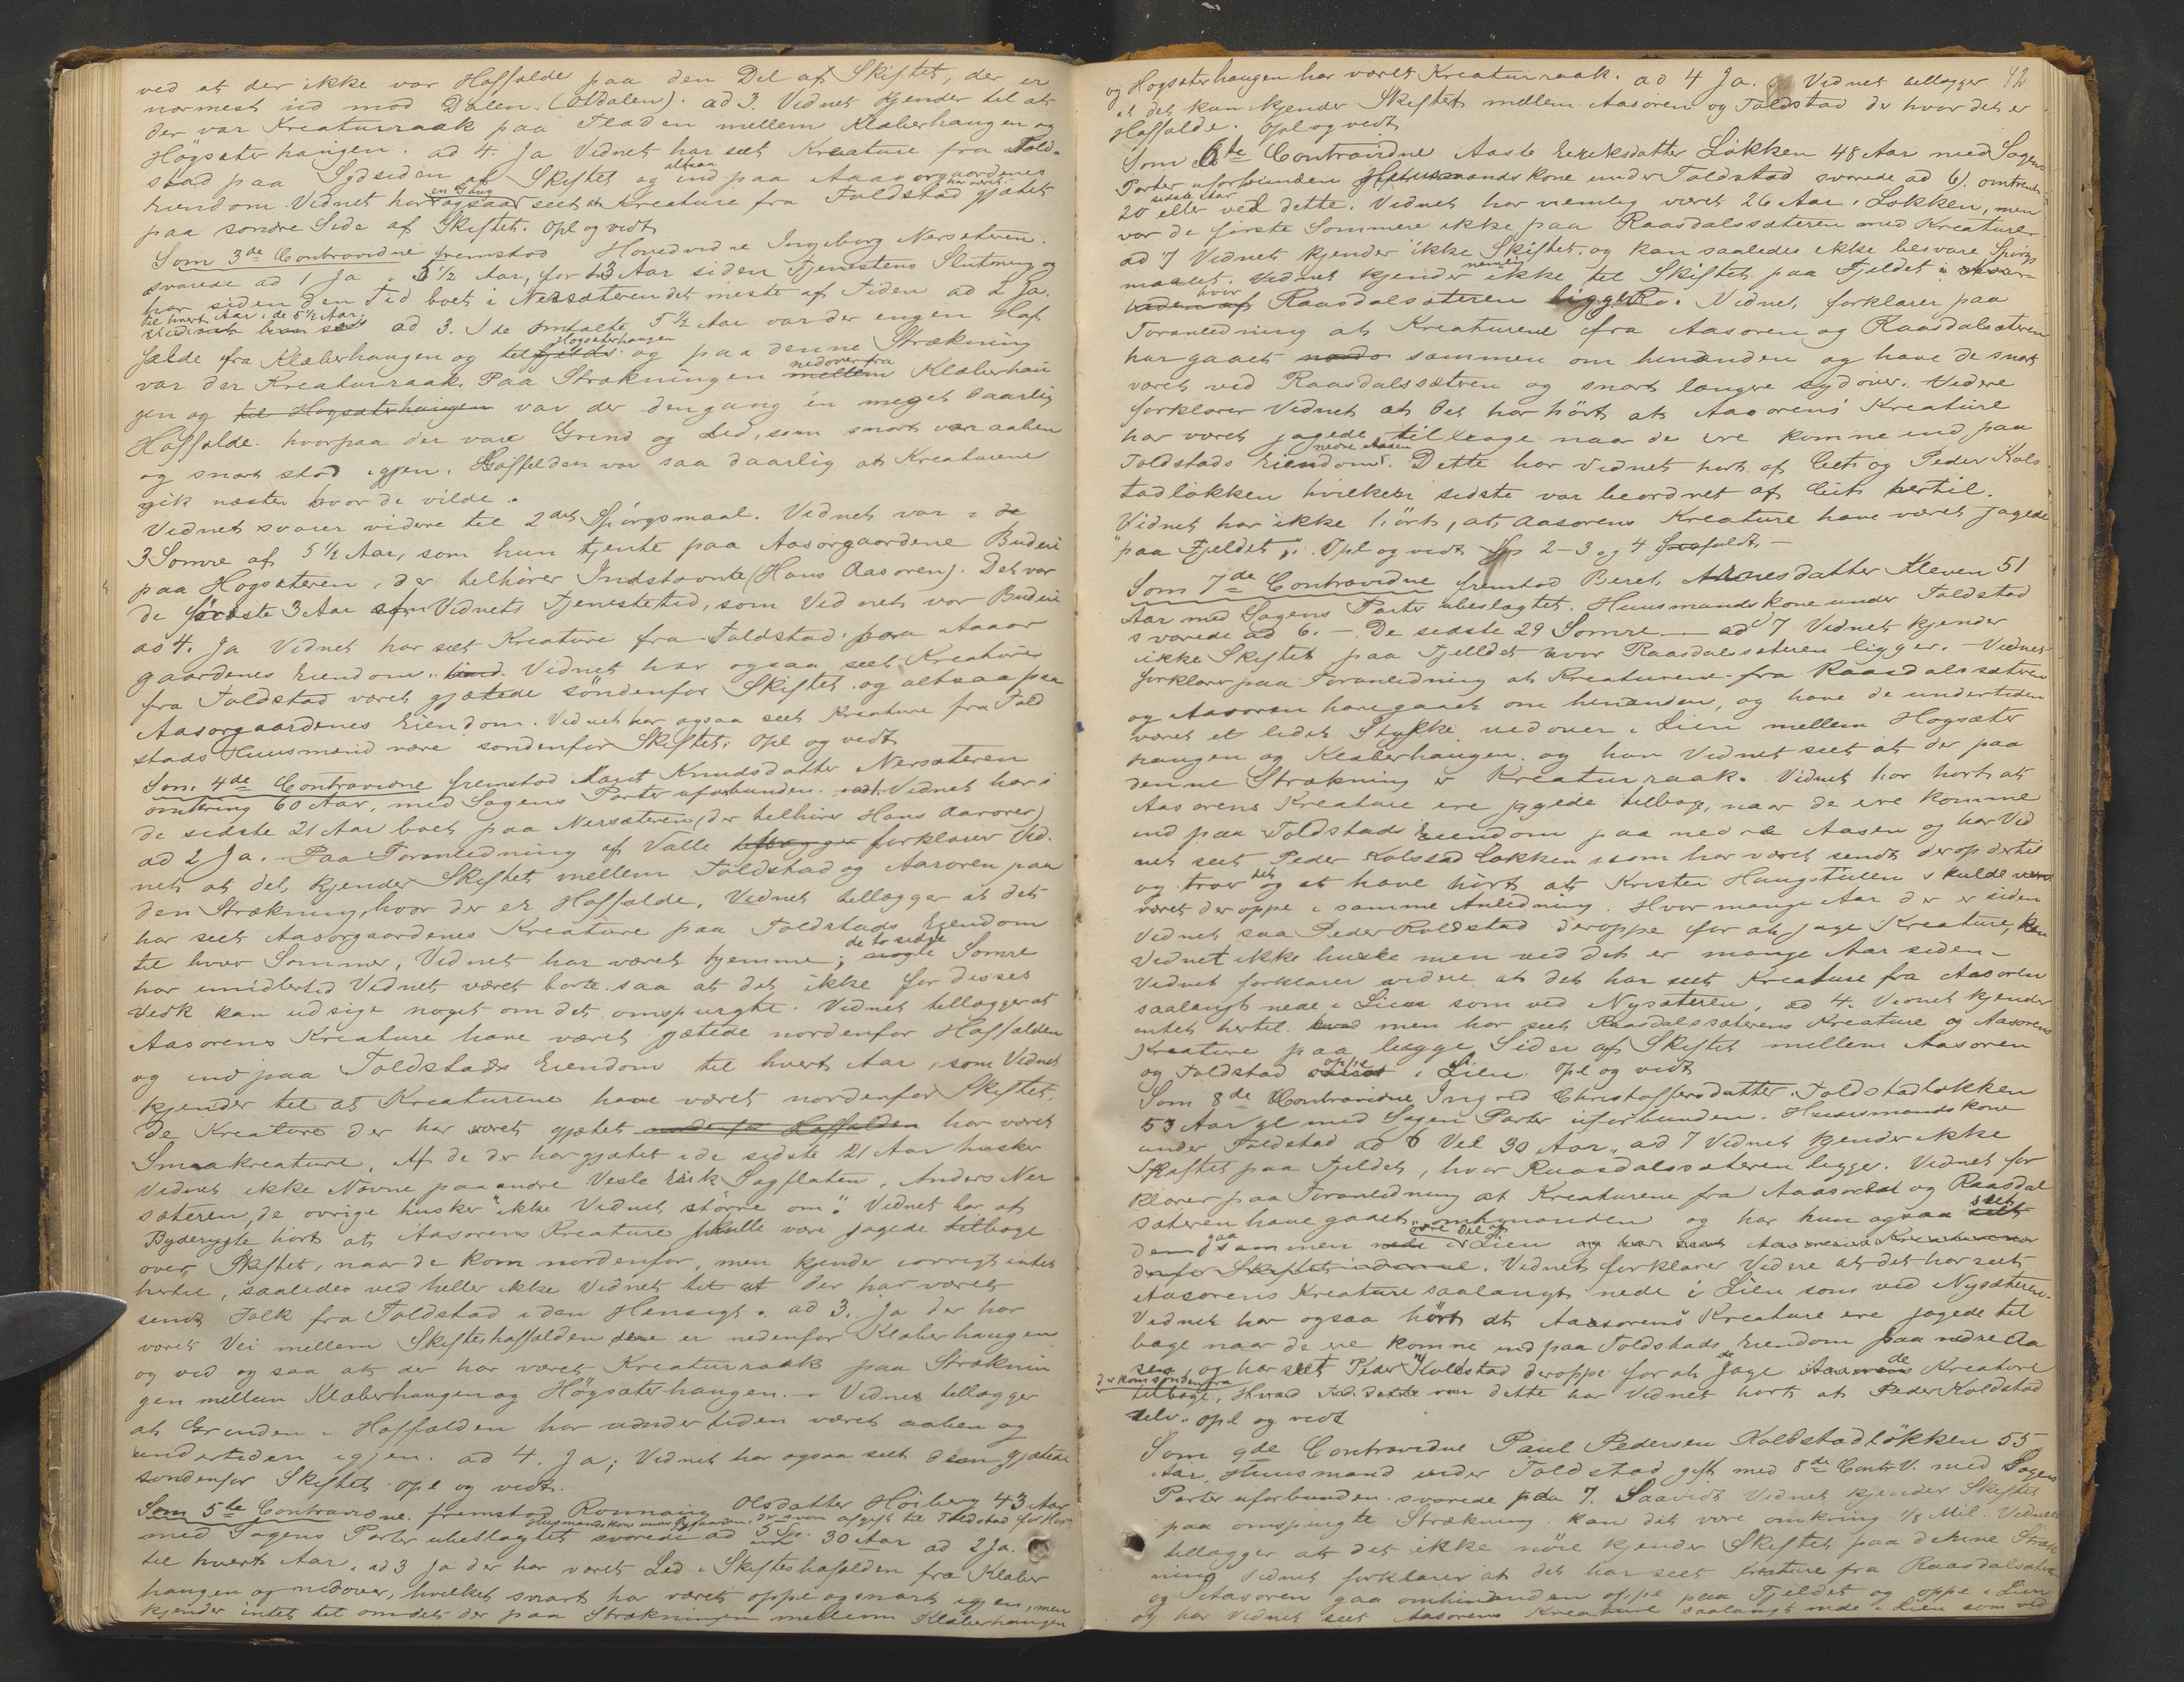 ved at der ikke var Haffælde paa den Del af Skiftet, der er
nærmest ind mod Dalen. (Otdalen). ad 3. Vidnet kjender til at
der var Kreaturraak paa Fladen mellem Klæberhaugen og
Högsæterhaugen. ad 4. Ja Vidnet har seet Kreature fra Fold-
stad paa Sydsiden af Skiftet og altsaa ind paa Aasorgaardenes
Eiendom. Vidnet har en Gang ogsaa seet at Kreature fra Foldstad har været gjætet
paa söndre Side af Skiftet. Opl og vedt
Som 3de Contravidne fremstod Hovedvidne Ingeborg Nersæteren.
svarede ad 1 Ja i 5 1/2 Aar, for 23 Aar siden Tjenestens Slutning og
har siden den Tid boet i Nersæteren det meste af Tiden ad 2 Ja.
til hvert Aar i de 5 1/2 Aar. ad 3. I de omtalte 5 1/2 Aar var der ingen Haf
fælde fra Klæberhaugen og til Högsæterhaugen og paa denne Strækning
var der Kreaturraak. Paa Strækningen nedover fra Klæberhau
gen og til Högsæterhaugen var der dengang én meget daarlig
Haffælde hvorpaa der vare Grind og Led, som snart var aaben
og snart stod igjen. Haffælden var saa daarlig at Kreaturene
gik næsten hvor de vilde.
Vidnet svarer videre til 2det Spörgsmaal. Vidnet var i de
3 Somre af 5 1/2 Aar, som hun tjente paa Aasorgaardene Budeie
paa Högsæteren, der tilhörer Indstævnte (Hans Aasoren). Det var
de förste 3 Aar af Vidnets Tjenestetid, som Vidnet var Budeie
ad 4. Ja Vidnet har seet Kreature fra Foldstad paa Aasor
gaardenes Eiendom. Vidnet har ogsaa seet Kreature
fra Foldstad været gjætede söndenfor Skiftet og altsaa paa
Aasorgaardenes Eiendom. Vidnet har ogsaa seet Kreature fra Fold
stads Huusmænd være söndenfor Skiftet. Opl og vedt
Som 4de Contravidne fremstod Marit Knudsdatter Nersæteren
omkring 60 Aar, med Sagens Parter uforbunden. Vidnet har i
de sidste 21 Aar boet paa Nersæteren (der tilhörer Hans Aasoren)
ad 2 Ja. Paa Foranledning af Valle forklarer Vid-
net at det kjender Skiftet mellem Foldstad og Aasoren paa
den Strækning, hvor der er Haffælde. Vidnet tillægger at det
har seet Aasorgaardenes Kreature paa Foldstads Eiendom
til hver Sommer, Vidnet har været hjemme; de to sidste Somre
har imidlertid Vidnet været borte saa at det ikke for disses
Vedk kan udsige noget om det omspurgte. Vidnet tillægger at
Aasorens Kreature have været gjætede nordenfor Haffælden
og ind paa Foldstads Eiendom til hvert Aar, som Vidnet
kjender til at Kreaturene have været nordenfor Skiftet.
De Kreature der har været gjætet nordenfor Haffælden har været
Smaakreature. Af de der har gjætet i de sidste 21 Aar husker
Vidnet ikke Navne paa andre Vesle Erik Sagflaten, Anders Ner
sæteren, de övrige husker "ikke Vidnet större om." Vidnet har af
Bygderygte hört at Aasorens Kreature skulle være jagede tilbage
over Skiftet, naar de kom nordenfor, men kjender iövrigt intet
hertil, saaledes ved heller ikke Vidnet til at der har været
sendt Folk fra Foldstad i den Hensigt. ad 3. Ja der har
været Vei mellem Skifteshaffælden der er nedenfor Klæberhaugen
og ved og saa at der har været Kreaturraak paa Stræknin
gen mellem Klæberhaugen og Högsæterhaugen. - Vidnet tillægger
at Grinden i Haffælden har undertiden været aaben og
undertiden igjen. ad 4. Ja; Vidnet har ogsaa seet dem gjætede
söndenfor Skiftet Opl og vedt.
Som 5te Contravidne fremstod Ronnaug Olsdatter Höiberg 43 Aar
med Sagens Parter ubeslægtet svarede ad 5 30 Aar ad 2 Ja.
til hvert Aar. ad 3 Ja der har været Led i Skifteshafælden fra Klæber
haugen og nedover, hvilket snart har været oppe og snart igjen, men
kjender intet til om det der paa Strækningen mellem Klæberhaugen
og Högsæterhaugen har været Kreaturraak. ad 4 Ja. Vidnet tillægger 42
at det kun kjender Skiftet mellem Aasoren og Foldstad der hvor det er
Haffælde. Opl og vedt
Som 6te Contravidne Aaste Eriksdatter Lökken 48 Aar med Sagens
Parter uforbunden Husmandskone under Foldstad svarede ad 6). omtrent
20 eller ved dette. Vidnet har nemlig været 26 Aar i Lökken, men
var de förste Sommere ikke paa Raasdalssæteren med Kreature
ad 7 Vidnet kjender ikke Skiftet og kan saaledes ikke besvare Spörgs
maalet. Vidnet kjender nemlig ikke til Skiftet paa Fjeldet
hvor Raasdalsæteren ligger. Vidnet forklarer paa
Foranledning at Kreaturene fra Aasoren og Raasdalsæteren
har gaaet sammen om hinanden og have de snart
været ved Raasdalssætren og snart længre sydover. Videre
forklarer Vidnet at det har hört at Aasorens Kreature
har været jagede tilbage naar de ere komne ind paa
Foldstads Eiendom nedre Aasen. Dette har Vidnet hört af Eeit og Peder Kols
tadlökken hvilken sidste var beordret af Eeit hertil.
Vidnet har ikke hört, at Aasorens Kreature have været jagede
"paa Fjeldet". Opl og vedt Sp 2-3 og 4 frafaldt. -
Som 7de Contravidne fremstod Beret Arnesdatter Kleven 51
Aar med Sagens Parter ubeslægtet. Huusmandskone under Foldstad
svarede ad 6. - De sidste 29 Somre - ad 7 Vidnet kjender
ikke Skiftet paa Fjeldet hvor Raasdalssæteren ligger. - Vidnet
forklarer paa Foranledning at Kreaturene fra Raasdalssætren
og Aasoren have gaaet om hinanden, og have de undertiden
været et lidet Stykke nedover i Lien mellem Högsæter
haugen og Klæberhaugen og har Vidnet seet at der paa
denne Strækning er Kreaturraak. Vidnet har hört at
Aasorens Kreature ere jagede tilbage, naar de ere komne
ind paa Foldstads Eiendom paa nedre Aasen og har Vid
net seet Peder Kolstadlökken, som har været sendt derop dertil
og troer det og at have hört at Krister Haugstulen skulde
været deroppe i samme Anledning. Hvor mange Aar der er siden
Vidnet saa Peder Koldstad deroppe for at jage Kreature, kan
Vidnet ikke huske men ved det er mange Aar siden.
Vidnet forklarer videre at det har seet Kreature fra Aasoren
saalangt nede i Lien som ved Nysæteren. ad 4. Vidnet kjender
intet hertil men har seet Raasdalssæterens Kreature og Aasorens
Kreature paa begge Sider af Skiftet mellem Aasoren
og Foldstad oppe i Lien. Opl og vedt
Som 8de Contravidne Ingrid Christoffersdatter Foldstadlökken
53 Aar gl med Sagen Parter uforbunden. Huusmandskone
under Foldstad ad 6 Vel 30 Aar. ad 7 Vidnet kjender ikke
Skiftet paa Fjeldet, hvor Raasdalssæteren ligger. Vidnet for
klarer paa Foranledning at Kreaturene fra Aasoren og Raasdal
sæteren have gaaet omhinanden og har hun ogsaa seet
dem gaa sammen i övre Del af Lien
. Vidnet forklarer Videre at det har seet
Aasorens Kreature saalangt nede i Lien som ved Nysæteren.
Vidnet har ogsaa hört at Aasorens Kreature ere jagede til
bage naar de ere komne ind paa Foldstads Eiendom paa nedre Aa
sen, og har seet Peder Koldstad deroppe for at jage de Kreature
der kom söndenfra tilbage, dette har Vidnet hört af Peder Koldstad
selv. Opl og vedt
Som 9de Contravidne Paul Pedersen Koldstadlökken 55
Aar, Huusmand under Foldstad gift med 8de Contr V. med Sagens
Parter uforbunden. svarede paa 7. Saavidt Vidnet kjender Skiftet
paa omspurgte Strækning kan det være omkring 1/8 Mil. Vidnet
tillægger at det ikke nöie kjender Skiftet paa denne Stræk
ning Vidnet forklarer at det har seet Kreature fra Raasdalsætre
og Aasoren gaa omhinanden oppe paa Fjeldet og oppe i Lien
og har Vidnet seet Aasorens Kreature saalangt nede i Lien som ved